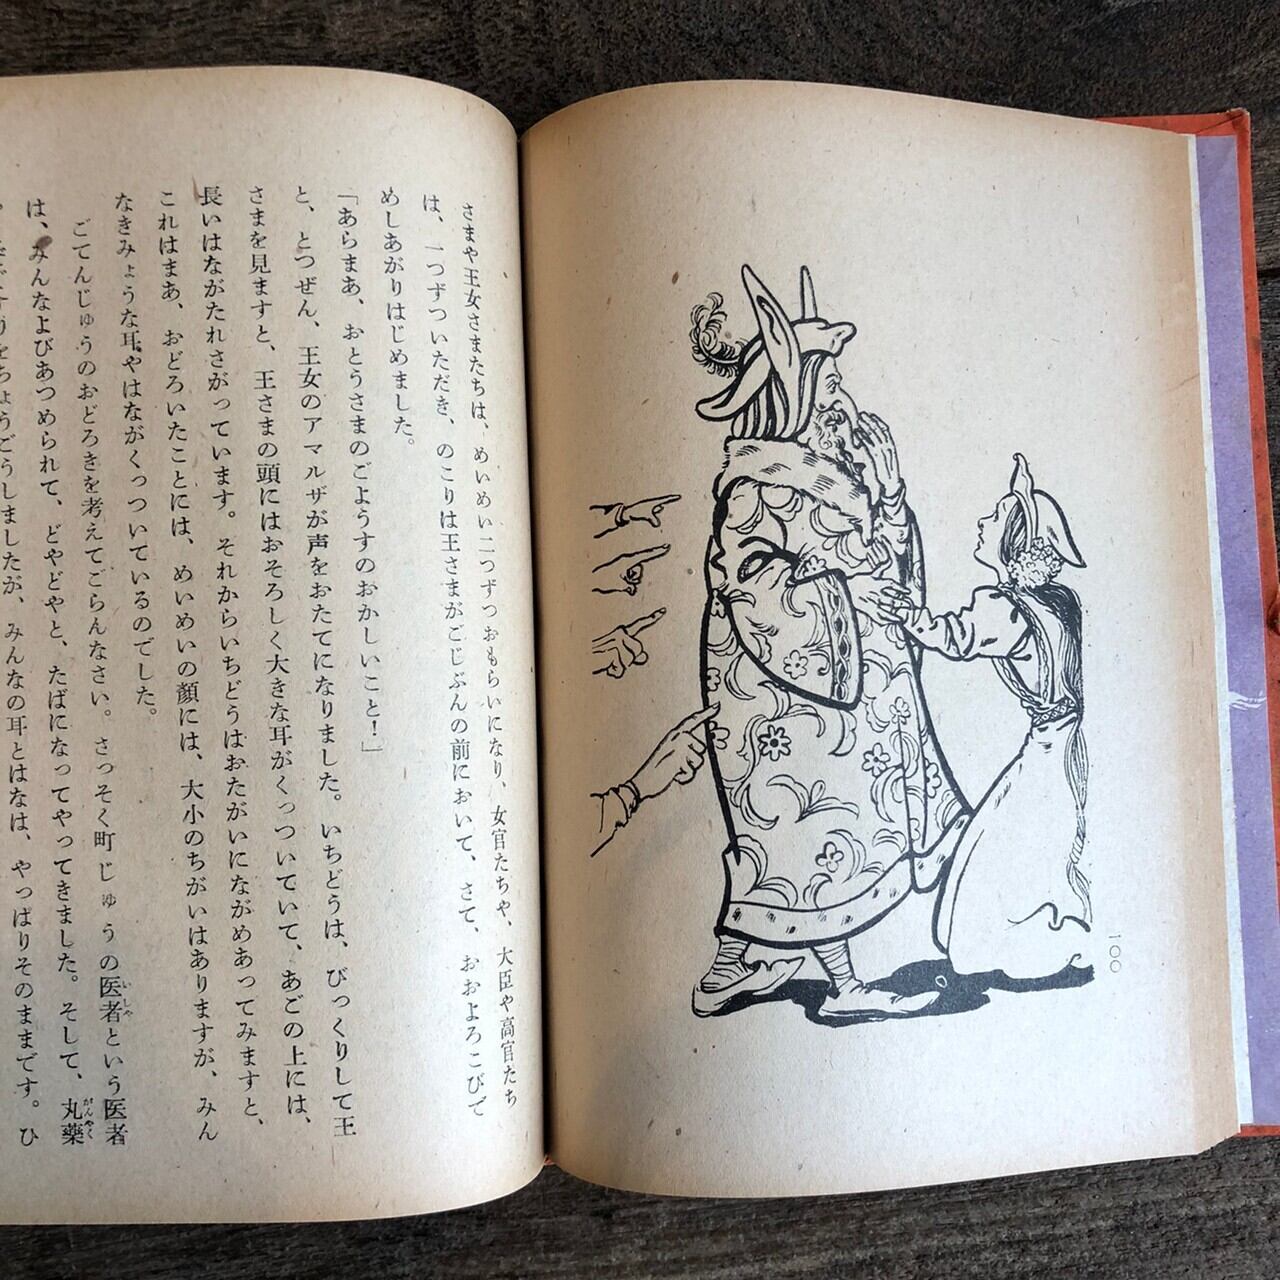 一〇〇
さまや王女さまたちは、めいめい二つずつおもらいになり、女官たちや、大臣や高官たち
は、一つずついただき、のこりは王さまがごじぶんの前において、さて、おおよろこびで
めしあがりはじめました。
「あらまあ、おとうさまのごようすのおかしいこと！」
と、とつぜん、王女のアマルザが声をおたてになりました。いちどうは、びっくりして王
さまを見ますと、王さまの頭にはおそろしく大きな耳がくっついていて、あごの上には、
長いはながたれさがっています。それからいちどうはおたがいにながめあってみますと、
これはまあ、おどろいたことには、めいめいの顔には、大小のちがいはありますが、みん
なきみょうな耳やはながくっついているのでした。
ごてんじゅうのおどろきを考えてごらんなさい。さっそく町じゅうの医者という医者
いしゃ
は、みんなよびあつめられて、どやどやと、たばになってやってきました。そして、丸藥
がんやく
ましたが、みんなの耳とはなは、やっぱりそのままです。ひ